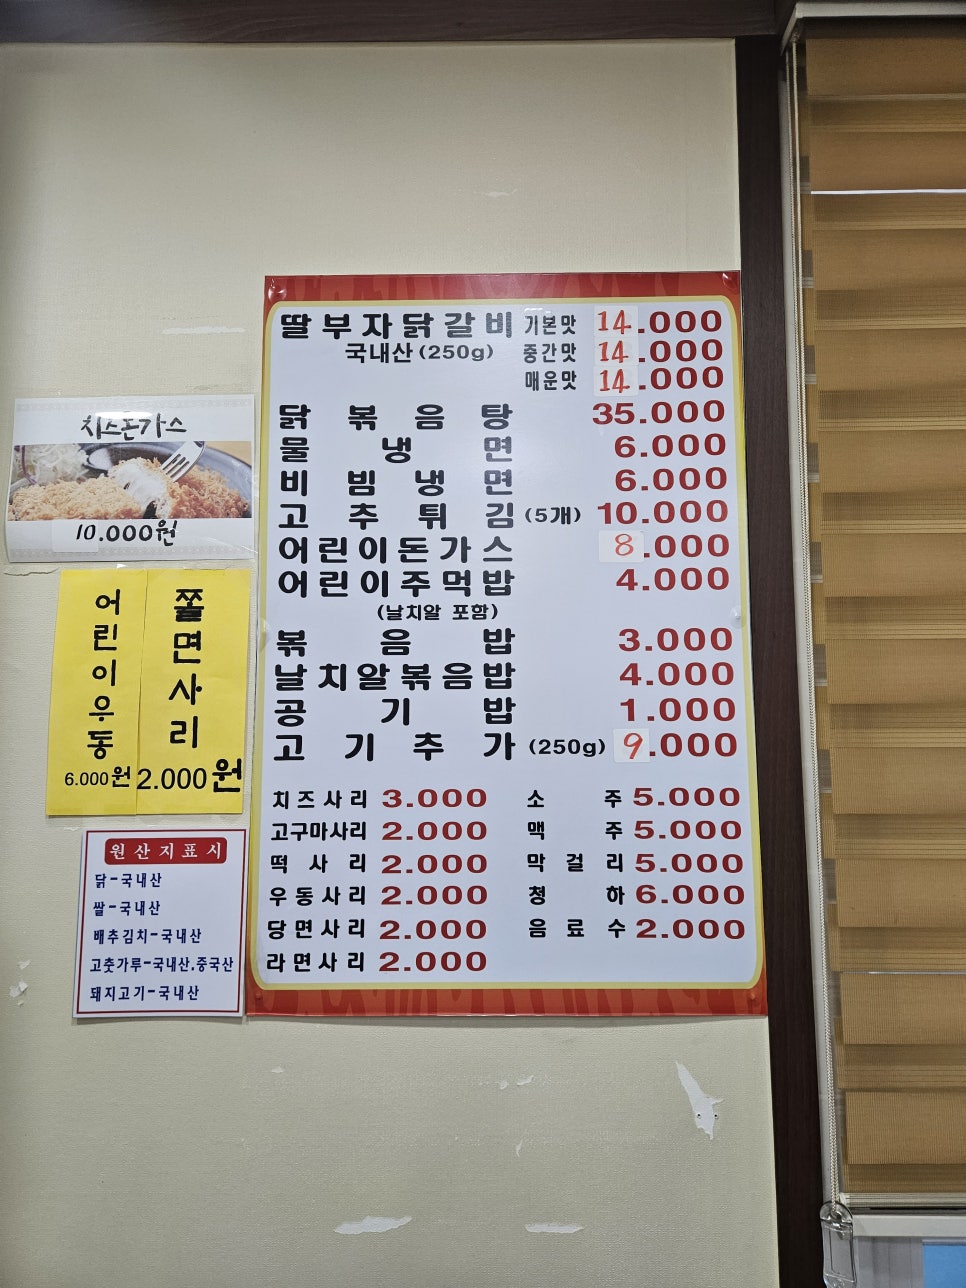 딸부자닭갈비 기본맛 14.000
국내산(250g) 중간맛 14.000
매운맛 14.000
닭볶음탕 35.000
물냉면 6.000
비빔냉면 6.000
고추튀김(5개) 10.000
어린이돈가스 8.000
어린이주먹밥 4.000
(날치알 포함)
볶음밥 3.000
날치알볶음밥 4.000
공기밥 1.000
고기추가(250g) 9.000
치즈사리 3.000
고구마사리 2.000
떡사리 2.000
우동사리 2.000
당면사리 2.000
라면사리 2.000
소주 5.000
맥주 5.000
막걸리 5.000
청하 6.000
음료수 2.000
치즈돈가스
10.000원
어린이우동
6.000원
쫄면사리
2.000원
원산지표시
닭-국내산
쌀-국내산
배추김치-국내산
고춧가루-국내산.중국산
돼지고기-국내산